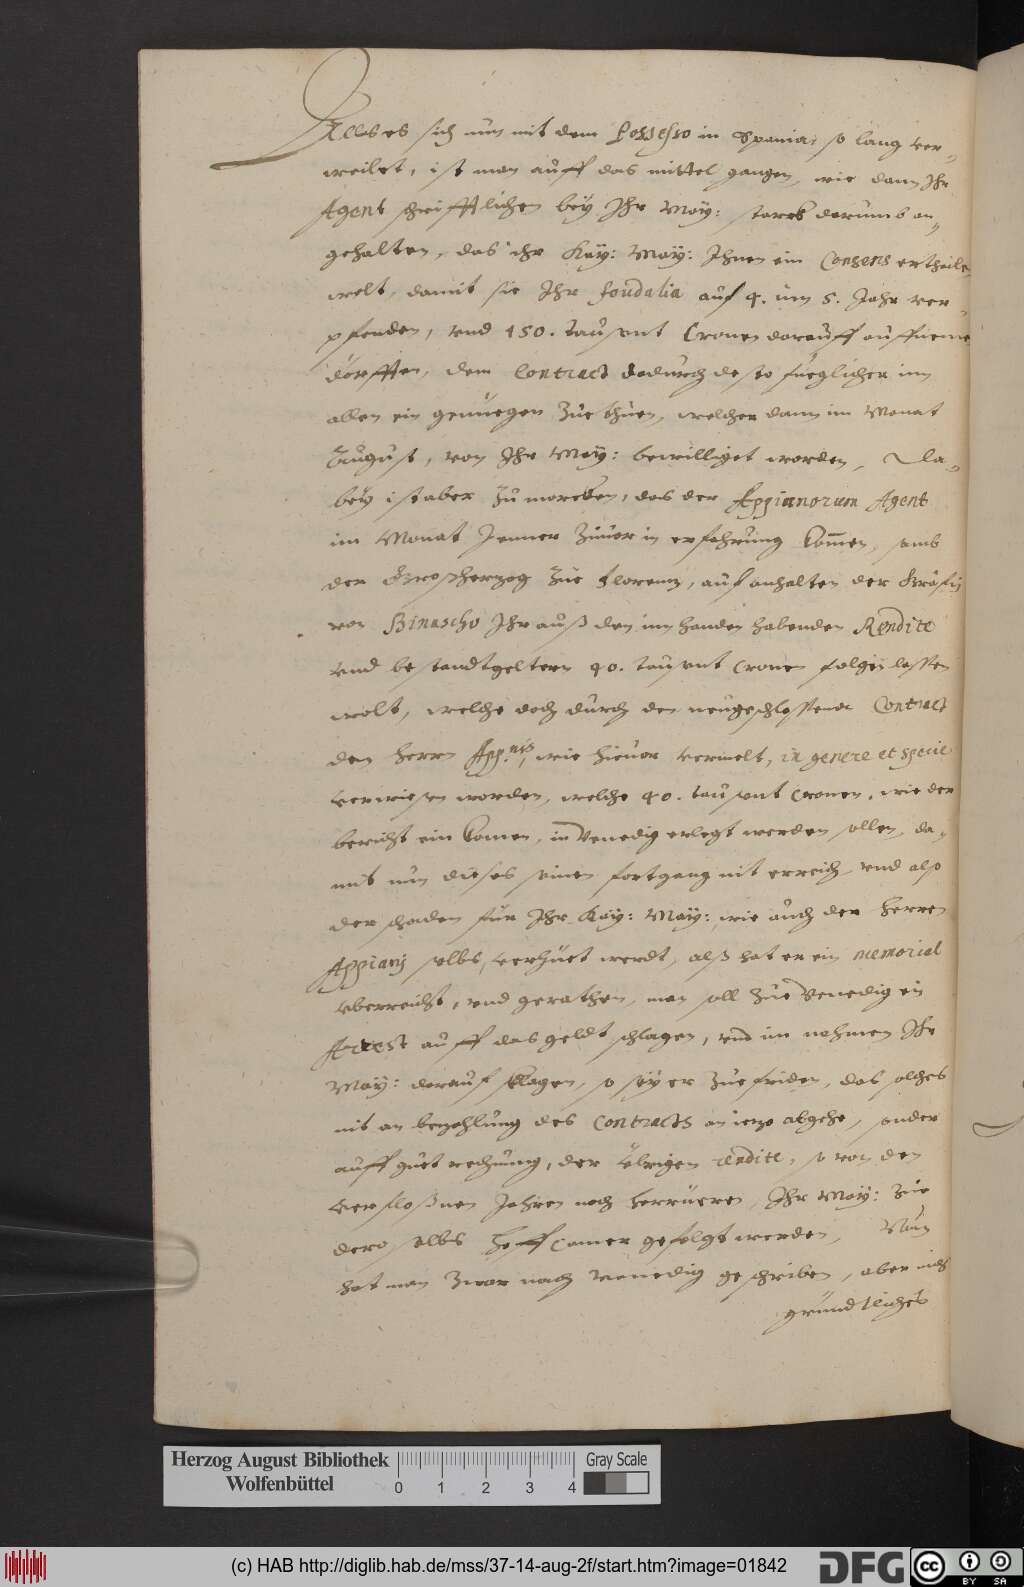 Alls es sich nun mit dem Possesso in Spania, so lang ver-
weilet, ist man auff das mittel gangen, wie dann Ihr
Agent schrifftlichen bey Ihr May: starck darumb an-
gehalten, das ihr Kay: May: Ihnen ein Consens ertheilen
wolt, damit sie Ihr feudalia auf 4. in 5. Jahr ver
pfenden, vnd 150. tausent Cronen darauff auffnemen
dörfften, dem Contract dadurch desto füeglicher inn
allen ein genüegen zue thuen, welcher dann im Monat
August, von Ihr May: bewilliget worden, Da-
bey ist aber zu mercken, das der Appianorum Agent
im Monat Jenner zuuor in erfahrung komen, samb
der Grosherzog zue Florenz, auf anhalten der Gräfin
von Binascho Ihr auß den inn handen habenden Rendite
vnd bestandtgeltern 40. tausent Cronen folgen lassen
wolt, welche doch durch den neugeschlossenen Contract
den herrn Appnis, wie hieuor vermelt, in genere et specie
verwisen worden, welche 40. tausent Cronen, wie der
bericht ein komen, in Venedig erlegt werden sollen, da-
mit nun dieses seinen fortgang nit erreich, vnd also
der schaden für Ihr Kay: May:, wie auch der herren
Appianj selbs, verhüet werdt, alß hat er ein memorial
vberreicht, vnd gerathen, man soll zue Venedig ein
Arrest auff das geldt schlagen, vnd im nahmen Ihr
May: darauf klagen, so sey er zuefriden, das solches
nit an bezahlung des Contracts an iezo abgehe, sonder
auff guet rechnung, der übrigen rendite, so von den
verfloßnen Jahren noch herrüeren, Ihr May: zue
dero selbs hoff Camer gefolgt werden, Nun
hat man zwar nach Venedig geschriben, aber nichts
gründtliches
Herzog August Bibliothek
Wolfenbüttel
0 1 2 3 4
Gray Scale
(c) HAB http://diglib.hab.de/mss/37-14-aug-2f/start.htm?image=01842
DFG
cc BY SA